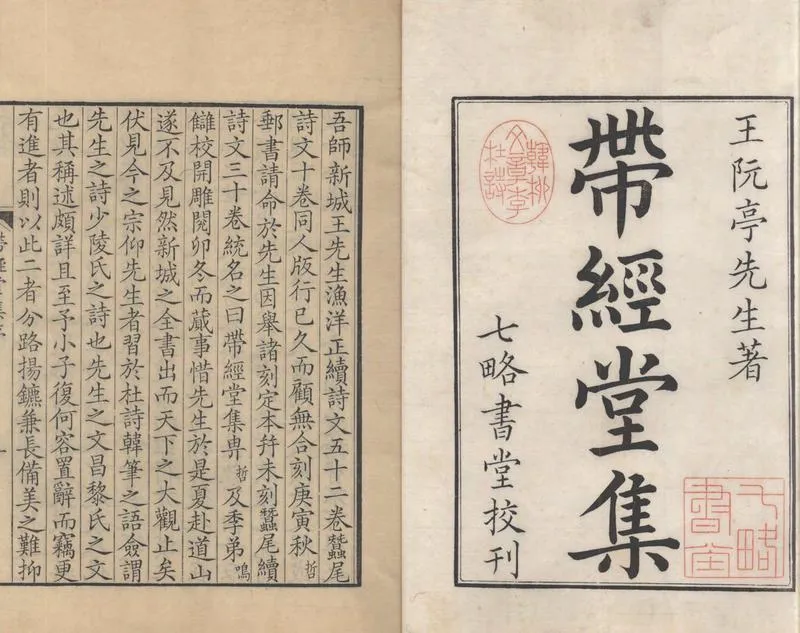 王阮亭先生著
帶經堂集
七略書堂校刊
韓柳
文章李
杜詩
七略
書堂
吾師新城王先生漁洋正續詩文五十二卷蠶尾
詩文十卷同人版行已久而顧無合刻庚寅秋哲
郵書請命於先生因舉諸刻定本幷未刻蠶尾續
詩文三十卷統名之曰帶經堂集畀哲及季弟鳴
讎校開雕閱卯冬而蕆事惜先生於是夏赴道山
遂不及見然新城之全書出而天下之大觀止矣
伏見今之宗仰先生者習於杜詩韓筆之語僉謂
先生之詩少陵氏之詩也先生之文昌黎氏之文
也其稱述頗詳且至予小子復何容置辭而竊更
有進者則以此二者分路揚鑣兼長備美之難抑